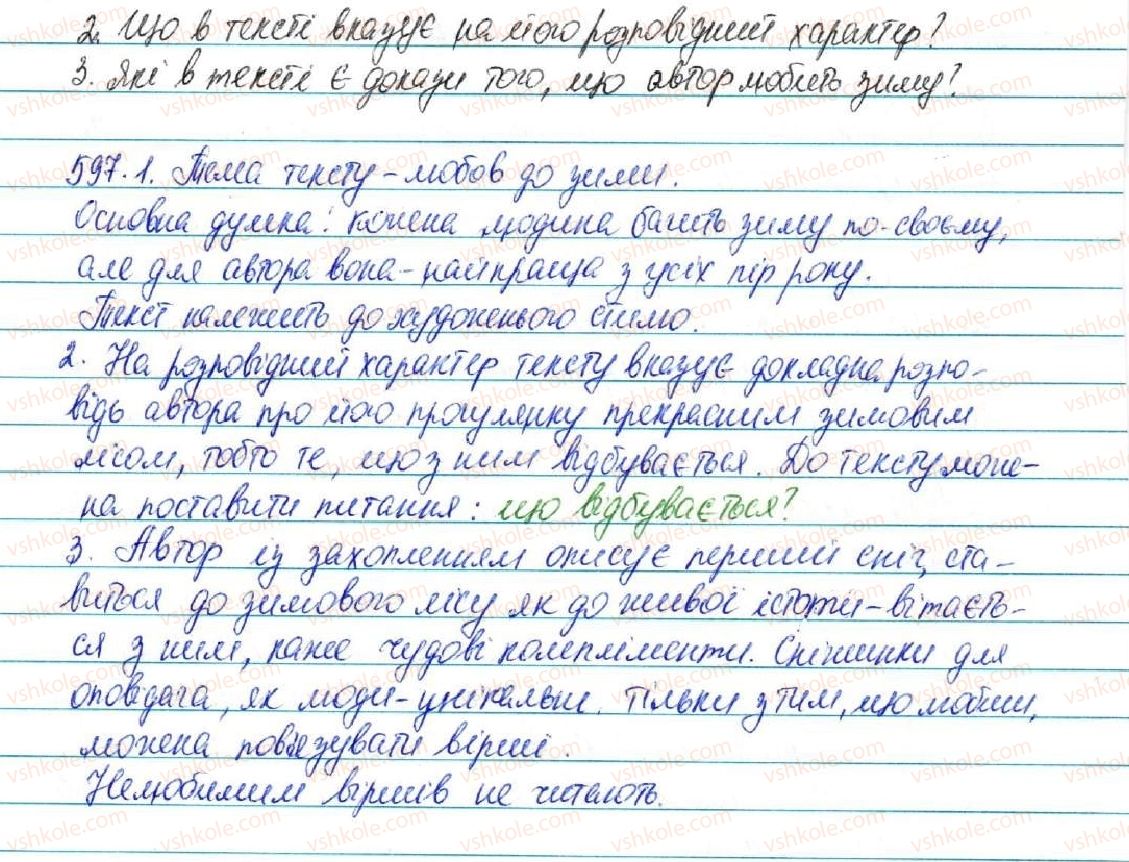 2. Що в тексті вказує на його розповідний характер?
3. Які в тексті є докази того, що автор любить зиму?
597.1. Тема тексту – любов до зими.
Основна думка: кожна людина бачить зиму по-своєму,
але для автора вона – найкраща з усіх пір року.
Текст належить до художнього стилю.
2. На розповідний характер тексту вказує докладна розпо-
відь автора про його прогулянку прекрасним зимовим
лісом, тобто те, що з ним відбувається. До тексту мож-
на поставити питання: що відбувається?
3. Автор із захопленням описує перший сніг, ста-
виться до зимового лісу як до живої істоти – вітаєть-
ся з ним, каже чудові компліменти. Сніжинки для
оповідача, як люди – унікальні. Тільки з тим, що любиш,
можна пов'язувати вірші.
Нелюбимим віршів не читають.